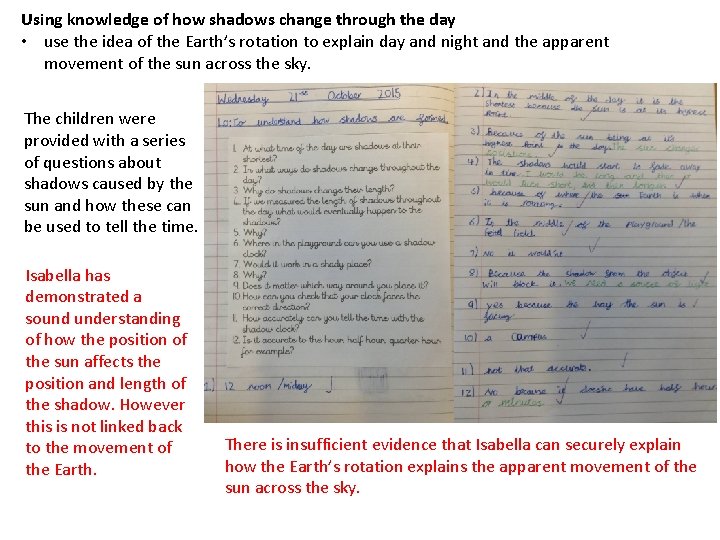 Using knowledge of how shadows change through the day
• use the idea of the Earth's rotation to explain day and night and the apparent
movement of the sun across the sky.
The children were
provided with a series
of questions about
shadows caused by the
sun and how these can
be used to tell the time.
Isabella has
demonstrated a
sound understanding
of how the position of
the sun affects the
position and length of
the shadow. However
this is not linked back
to the movement of
the Earth.
Wednesday 21st October 2015
Lo: To understand how shadows are formed
1. At what time of the day are shadows at their
shortest?
2. In what ways do shadows change throughout the
day?
3. Why do shadows change their length?
4. If we measured the length of shadows throughout
the day what would eventually happen to the
shadows?
5. Why?
6. Where in the playground can you use a shadow
clock?
7. Would it work in a shady place?
8. Why?
9. Does it matter which way around you place it?
10. How can you check that your clock faces the
correct direction?
11. How accurately can you tell the time with the
shadow clock?
12. Is it accurate to the hour, half hour, quarter hour
for example?
1.) 12 noon/midday
2) In the middle of the day it is the
shortest because the sun is at its highest
point
3) because of the sun being at its
highest point in the day. The sun changes
4) The shadows would start to fade away
in time I would be long and then
would turn short, but then longer
5) because of where the sun Earth is when
it is
6) In the middle of the playground/the
field.
7) No it wouldn't
8) Because the shadow from the object
will block it. We need a source of light
9) yes because the way the sun is
facing
10) a Campus
11) not that accurate.
12) No because it doesn't have half hour
or minutes
There is insufficient evidence that Isabella can securely explain
how the Earth's rotation explains the apparent movement of the
sun across the sky.